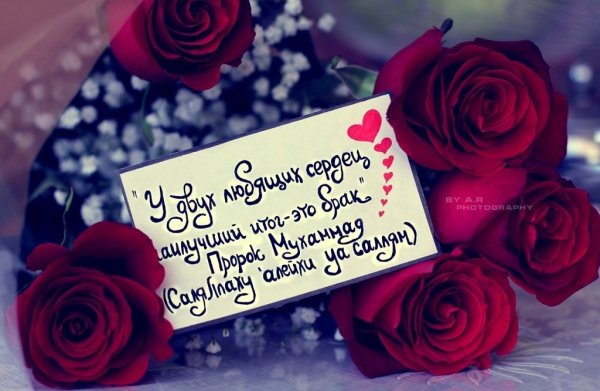 "У двух любящих сердец
наилучший итог-это брак"
Пророк Мухаммад
(Салляллаху 'алейхи уа саллям)
BY A.R
PHOTOGRAPHY